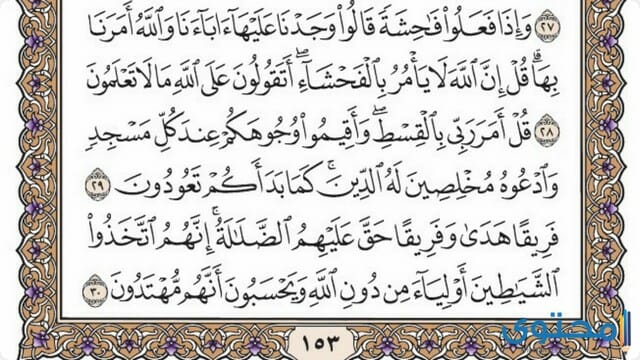 ٢٧ وَإِذَا فَعَلُوا۟ فَـٰحِشَةً قَالُوا۟ وَجَدْنَا عَلَيْهَآ ءَابَآءَنَا وَٱللَّهُ أَمَرَنَا
بِهَا ۗ قُلْ إِنَّ ٱللَّهَ لَا يَأْمُرُ بِٱلْفَحْشَآءِ ۖ أَتَقُولُونَ عَلَى ٱللَّهِ مَا لَا تَعْلَمُونَ
٢٨ قُلْ أَمَرَ رَبِّى بِٱلْقِسْطِ ۖ وَأَقِيمُوا۟ وُجُوهَكُمْ عِندَ كُلِّ مَسْجِدٍ
وَٱدْعُوهُ مُخْلِصِينَ لَهُ ٱلدِّينَ ۚ كَمَا بَدَأَكُمْ تَعُودُونَ ٢٩
فَرِيقًا هَدَىٰ وَفَرِيقًا حَقَّ عَلَيْهِمُ ٱلضَّلَـٰلَةُ ۗ إِنَّهُمُ ٱتَّخَذُوا۟
ٱلشَّيَـٰطِينَ أَوْلِيَآءَ مِن دُونِ ٱللَّهِ وَيَحْسَبُونَ أَنَّهُم مُّهْتَدُونَ ٣٠
١٥٣
محتوى